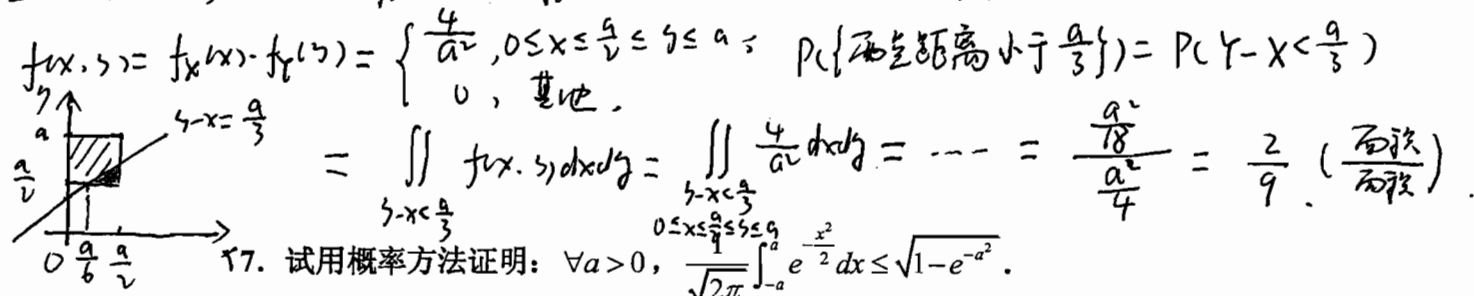 f(x,y)= f_X(x)·f_Y(y)= { 4/a², 0≤x≤a/2≤y≤a; 0, 其他. P({两点距离小于a/3})= P(Y-X<a/3)
y a a/2 y-x=a/3 = ∬_{y-x<a/3} f(x,y)dxdy = ∬_{y-x<a/3, 0≤x≤a/2≤y≤a} 4/a² dxdy = ---- = (a²/18)/(a²/4) = 2/9. (面积/面积).
0 a/6 a/2
17. 试用概率方法证明：∀a>0， 1/√(2π) ∫_{-a}^{a} e^{-x²/2} dx ≤ √(1-e^{-a²}) .